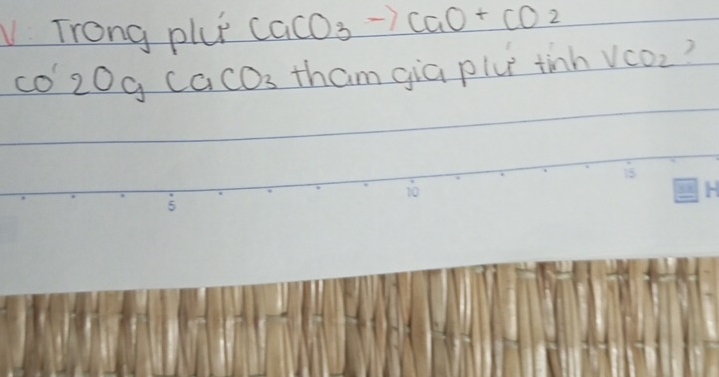 V: Trong plư CaCO3 → CaO + CO2
có 20g CaCO3 tham gia plư tính VCO2?
5 10 15
H